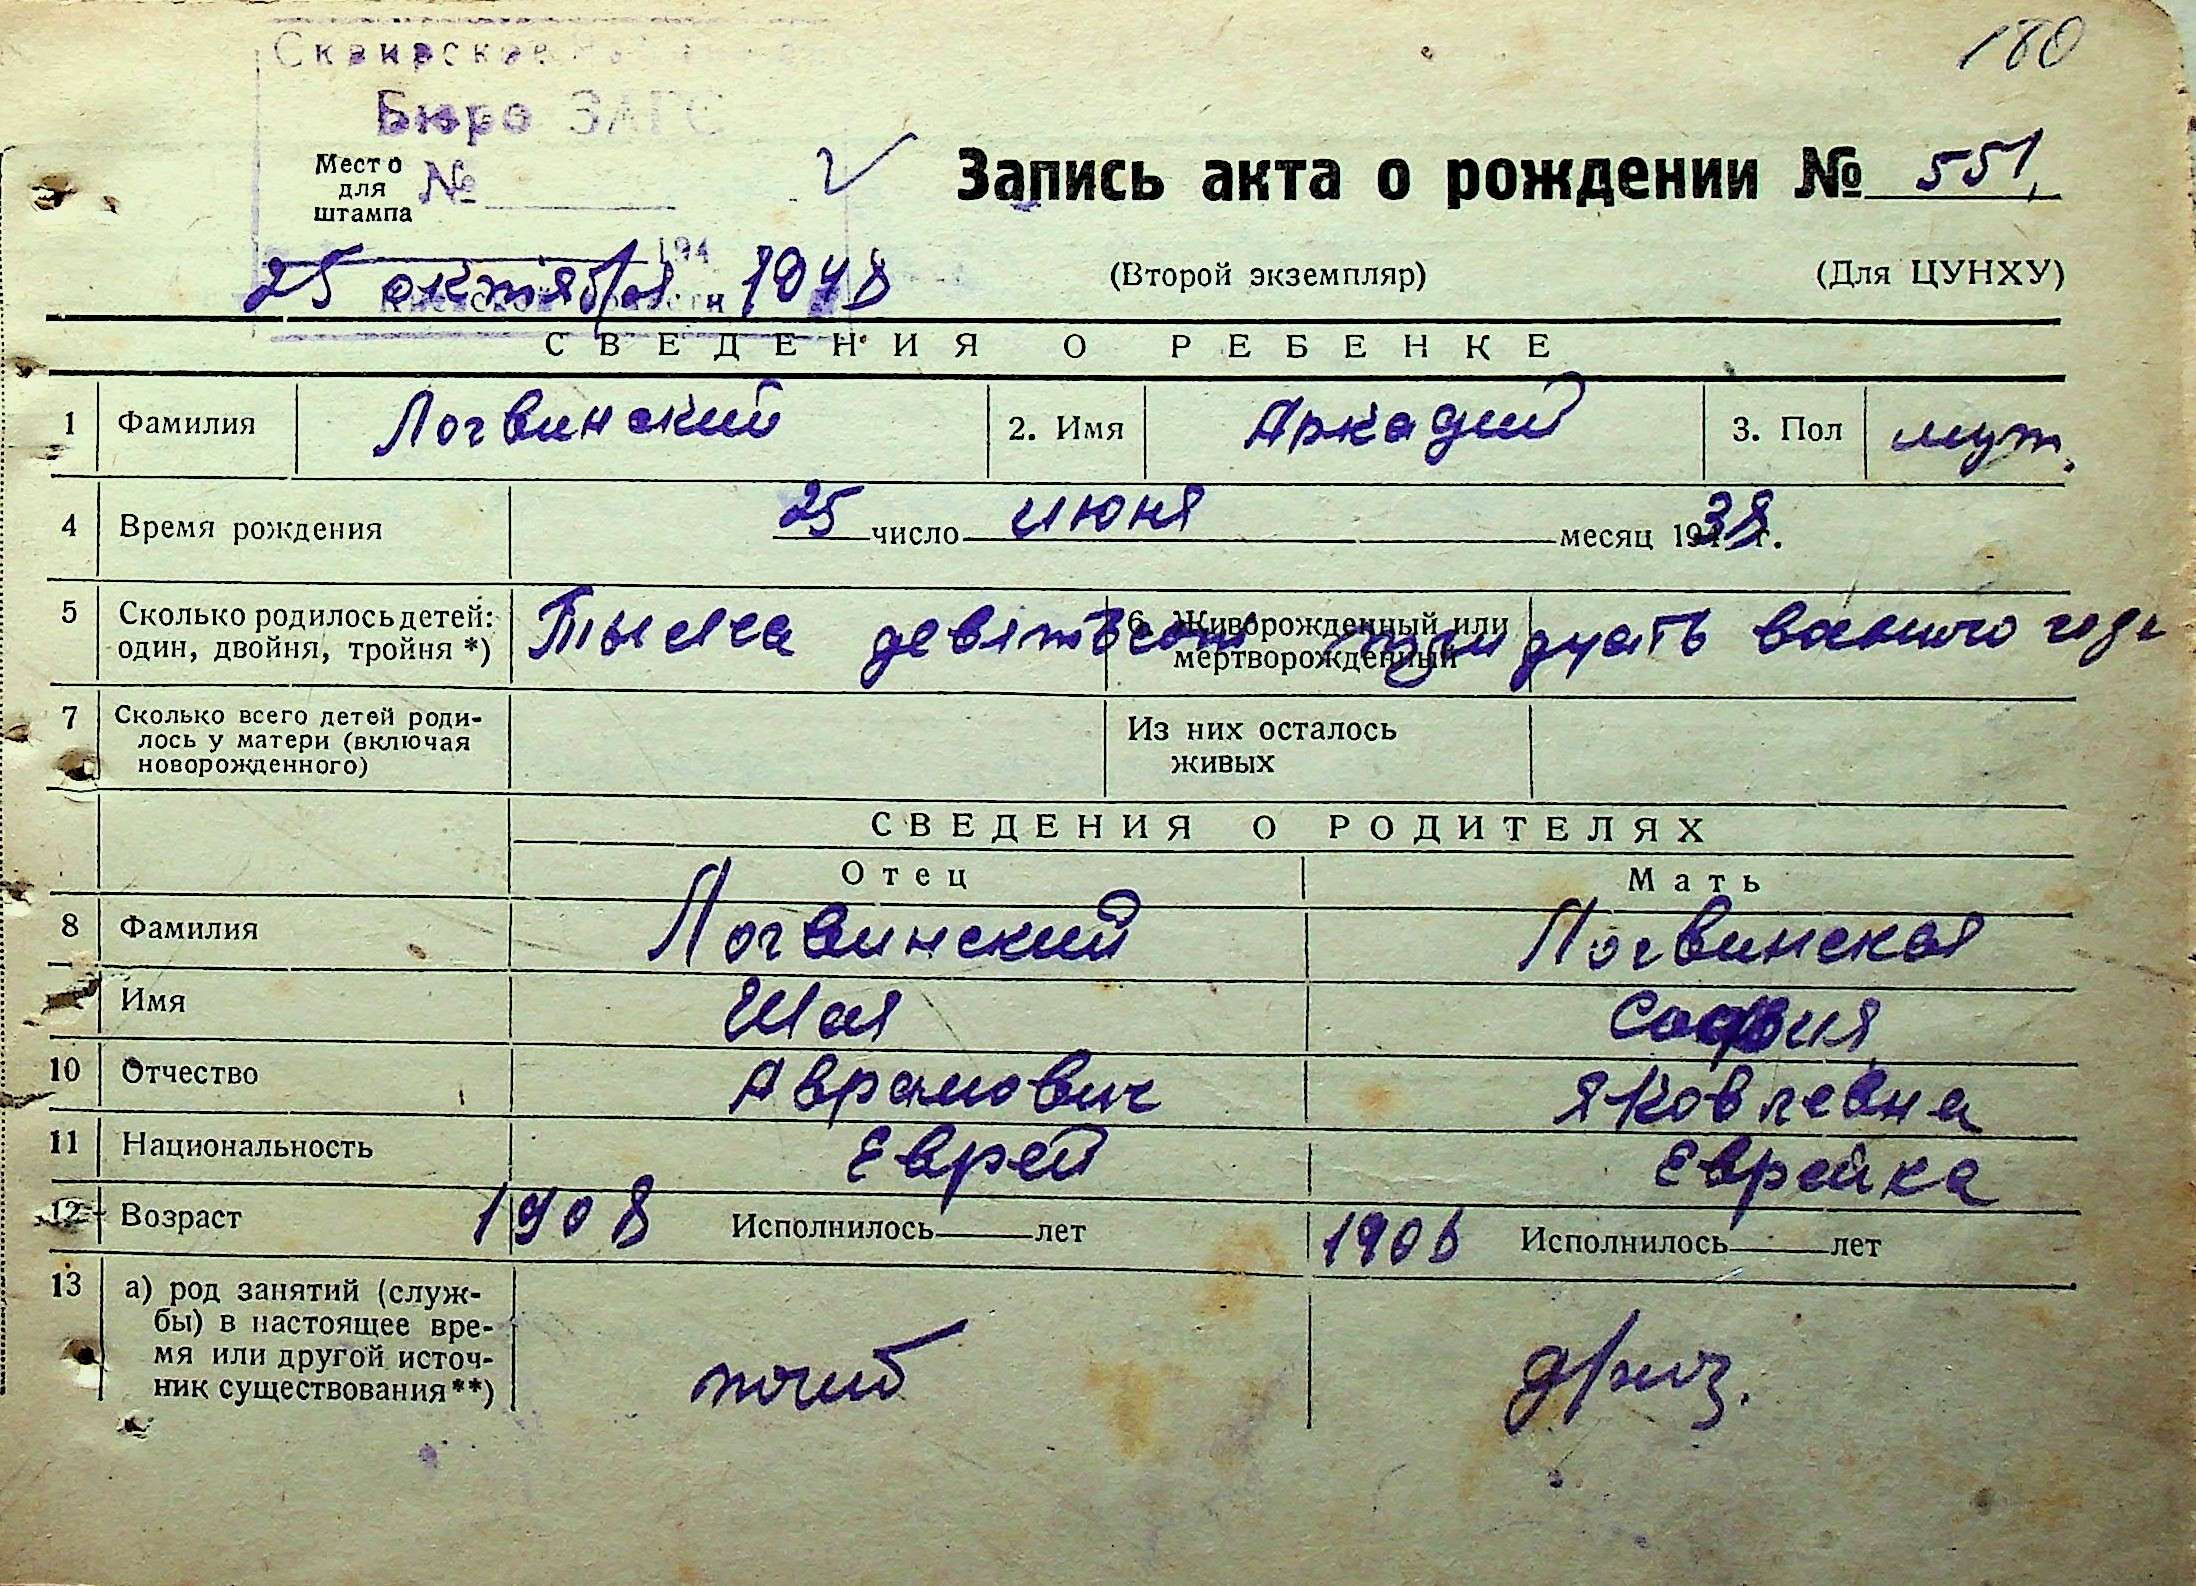 180
Сквирское
Бюро ЗАГС
Место для штампа №
194
25 октября 1948
Запись акта о рождении № 551
(Второй экземпляр) (Для ЦУНХУ)
СВЕДЕНИЯ О РЕБЕНКЕ
1 Фамилия Логвинский 2. Имя Аркадий 3. Пол муж.
4 Время рождения 25 число июня месяц 1938 г.
5 Сколько родилось детей: один, двойня, тройня *) 6. Живорожденный или мертворожденный
Тысяча девятьсот тридцать восьмого года
7 Сколько всего детей роди-
лось у матери (включая
новорожденного)
Из них осталось
живых
СВЕДЕНИЯ О РОДИТЕЛЯХ
Отец Мать
8 Фамилия Логвинский Логвинская
Имя Шая София
10 Отчество Аврамович Яковлевна
11 Национальность Еврей Еврейка
12 Возраст 1908 Исполнилось лет 1908 Исполнилось лет
13 а) род занятий (служ-
бы) в настоящее вре-
мя или другой источ-
ник существования**)
погиб